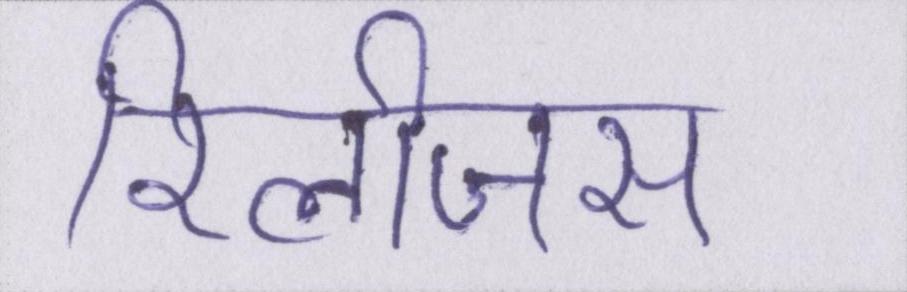 रिलीजस